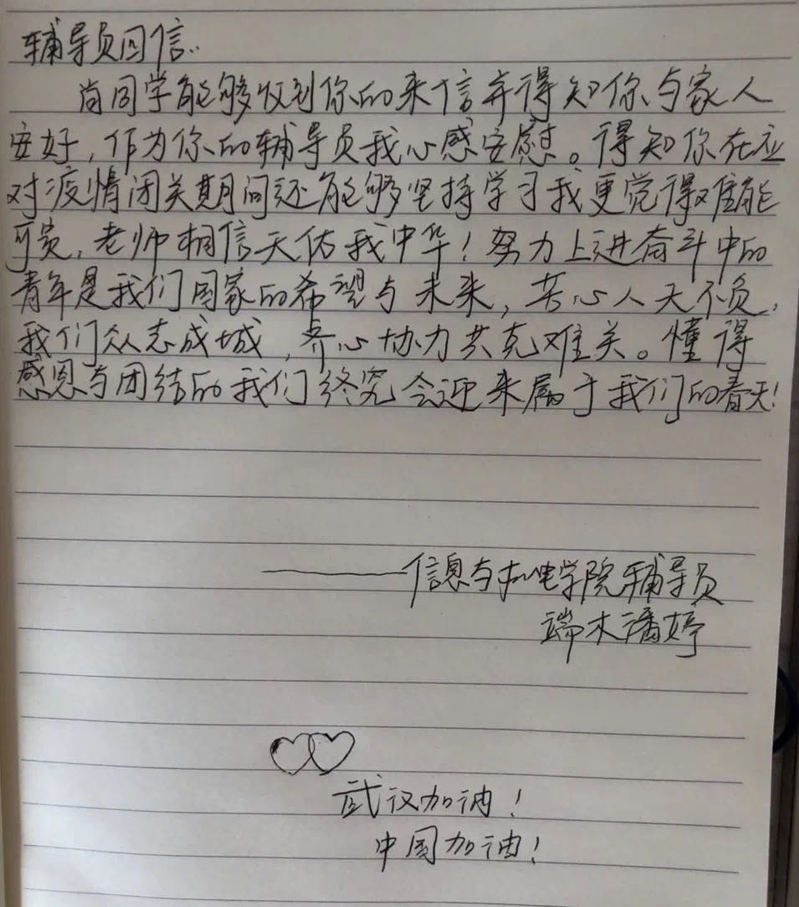 辅导员回信:
尚同学能够收到你的来信并得知你与家人
安好，作为你的辅导员我心感安慰。得知你在应
对疫情闭关期间还能够坚持学习我更觉得难能
可贵，老师相信天佑我中华！努力上进奋斗中的
青年是我们国家的希望与未来，苦心人天不负，
我们众志成城，齐心协力共克难关。懂得
感恩与团结的我们终究会迎来属于我们的春天！
——信息与机电学院辅导员
端木潘婷
武汉加油！
中国加油！